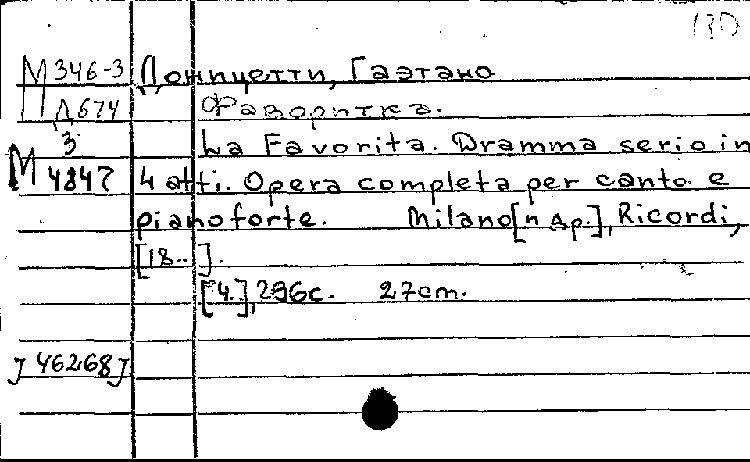 130
М 346-3 Доницетти, Гаэтано
Д674 Фаворитка.
3 La Favorita. Dramma serio in
М 4847 4 atti. Opera completa per canto e
pianoforte. Milano [и др.], Ricordi,
[18..].
[4.], 296с. 27cm.
J 46268J